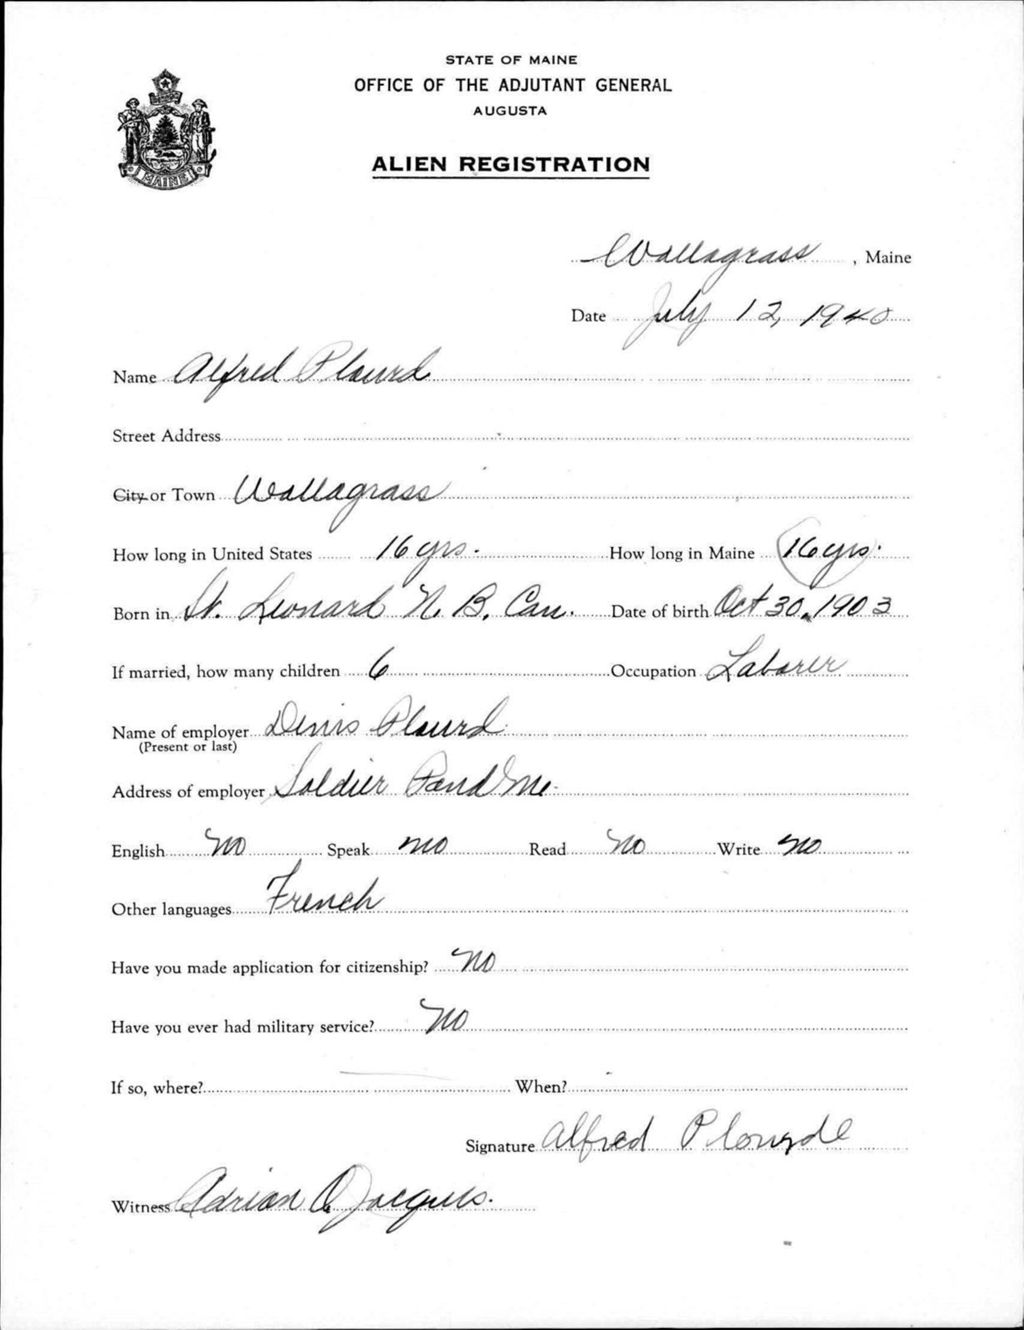 STATE OF MAINE
OFFICE OF THE ADJUTANT GENERAL
AUGUSTA
ALIEN REGISTRATION
MAINE
Wallagrass, Maine
Date July 12, 1940
Name Alfred Plourd
Street Address
City or Town Wallagrass
How long in United States 16 yrs. How long in Maine 16 yrs.
Born in St. Leonard N. B. Can. Date of birth Oct 30, 1903
If married, how many children 6 Occupation Laborer
Name of employer Denis Plourd
(Present or last)
Address of employer Soldier Pond Me.
English No Speak no Read No Write no
Other languages French
Have you made application for citizenship? No
Have you ever had military service? No
If so, where? When?
Signature Alfred Plourde
Witness Adrian O Jacques.